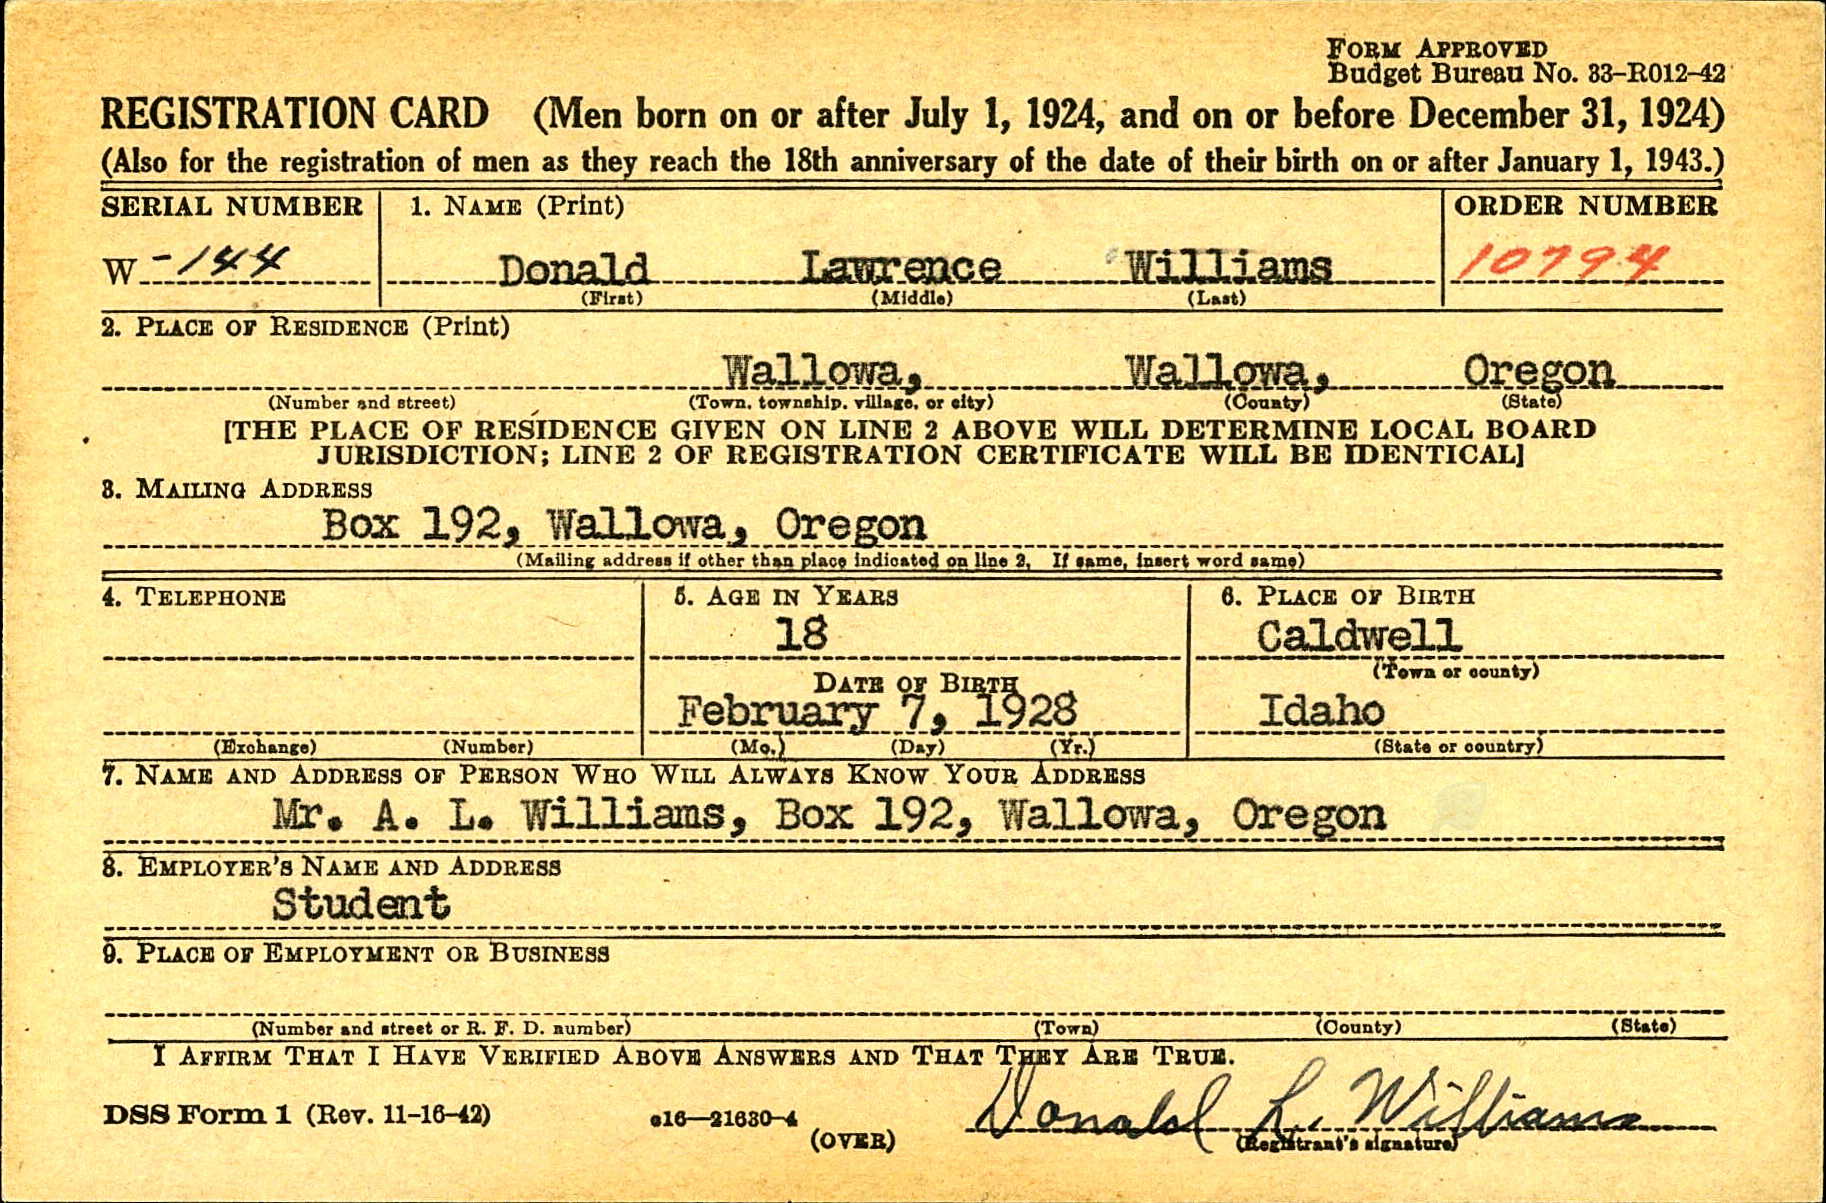 FORM APPROVED
Budget Bureau No. 33-R012-42
REGISTRATION CARD (Men born on or after July 1, 1924, and on or before December 31, 1924)
(Also for the registration of men as they reach the 18th anniversary of the date of their birth on or after January 1, 1943.)
SERIAL NUMBER 1. NAME (Print) ORDER NUMBER
W -144 Donald Lawrence Williams 10794
(First) (Middle) (Last)
2. PLACE OF RESIDENCE (Print)
Wallowa, Wallowa, Oregon
(Number and street) (Town, township, village, or city) (County) (State)
[THE PLACE OF RESIDENCE GIVEN ON LINE 2 ABOVE WILL DETERMINE LOCAL BOARD
JURISDICTION; LINE 2 OF REGISTRATION CERTIFICATE WILL BE IDENTICAL]
3. MAILING ADDRESS
Box 192, Wallowa, Oregon
(Mailing address if other than place indicated on line 2. If same, insert word same)
4. TELEPHONE 5. AGE IN YEARS 6. PLACE OF BIRTH
18 Caldwell
(Town or county)
DATE OF BIRTH
February 7, 1928 Idaho
(Exchange) (Number) (Mo.) (Day) (Yr.) (State or country)
7. NAME AND ADDRESS OF PERSON WHO WILL ALWAYS KNOW YOUR ADDRESS
Mr. A. L. Williams, Box 192, Wallowa, Oregon
8. EMPLOYER'S NAME AND ADDRESS
Student
9. PLACE OF EMPLOYMENT OR BUSINESS
(Number and street or R. F. D. number) (Town) (County) (State)
I AFFIRM THAT I HAVE VERIFIED ABOVE ANSWERS AND THAT THEY ARE TRUE.
DSS Form 1 (Rev. 11-16-42) c16—21630-4 Donald L. Williams
(OVER) (Registrant's signature)